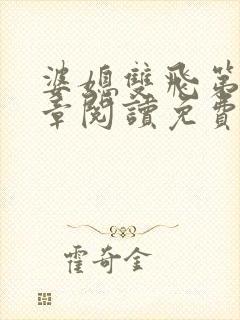 婆媳雙飛第
章閱讀免費
霍奇金